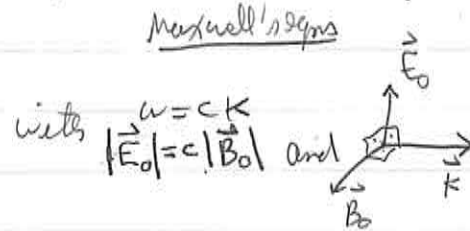 Maxwell's eqns
with ω = cK
|E⃗₀| = c|B⃗₀| and
E⃗₀
K⃗
B⃗₀